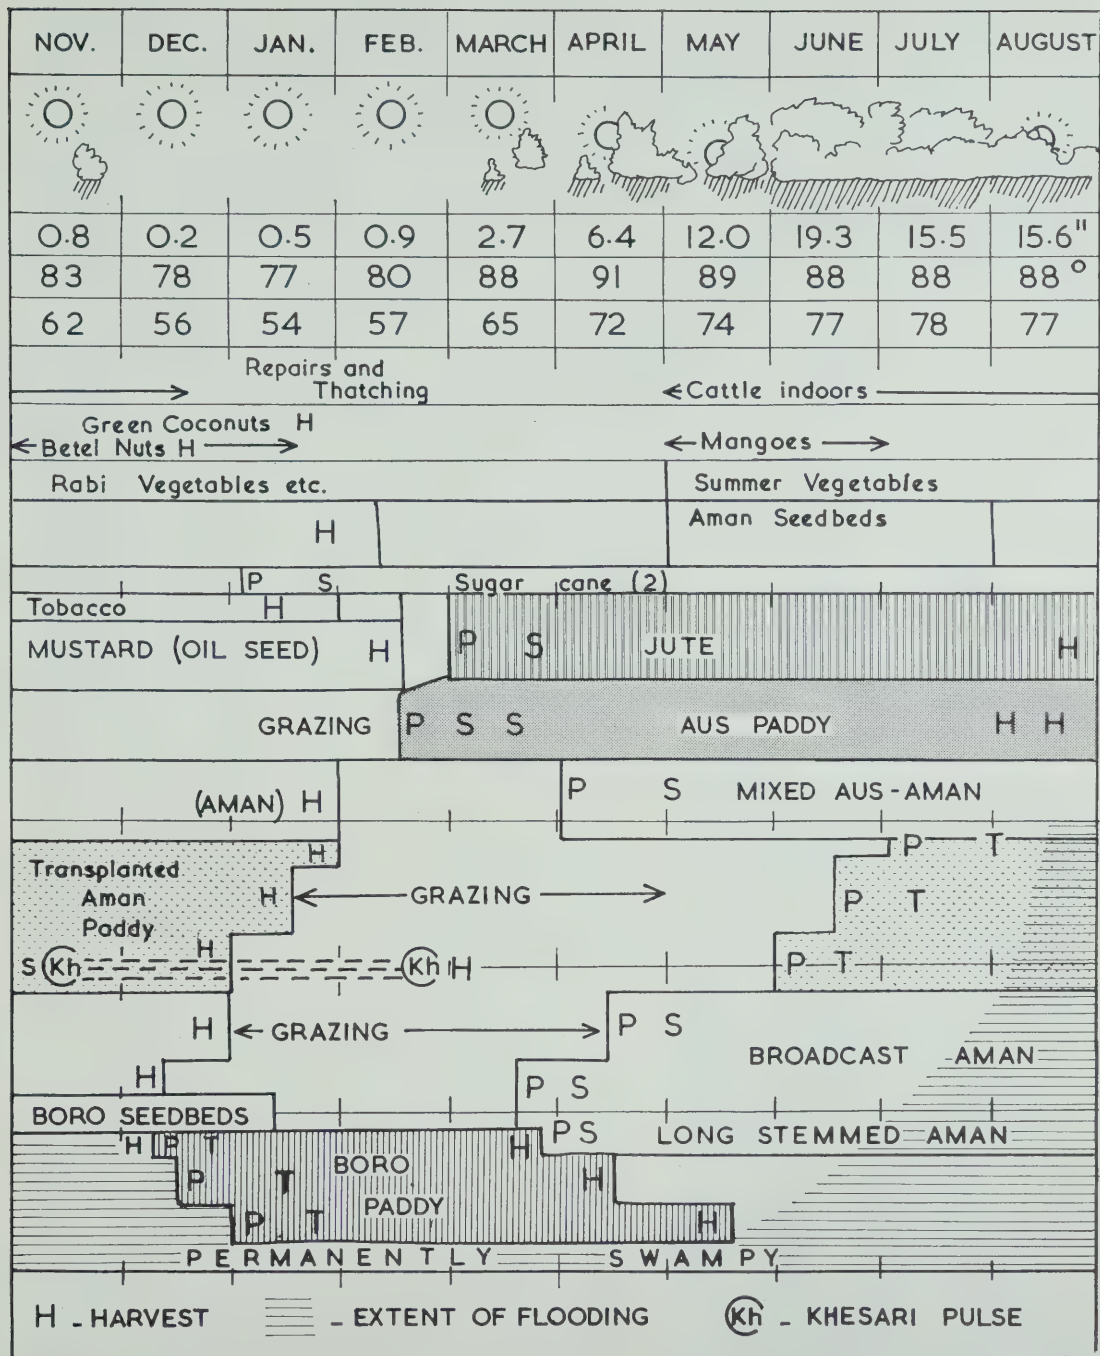 NOV. DEC. JAN. FEB. MARCH APRIL MAY JUNE JULY AUGUST
0.8 0.2 0.5 0.9 2.7 6.4 12.0 19.3 15.5 15.6"
83 78 77 80 88 91 89 88 88 88°
62 56 54 57 65 72 74 77 78 77
Repairs and
Thatching Cattle indoors
Green Coconuts H
Betel Nuts H Mangoes
Rabi Vegetables etc. Summer Vegetables
H Aman Seedbeds
P S Sugar cane (2)
Tobacco H
MUSTARD (OIL SEED) H P S JUTE H
GRAZING P S S AUS PADDY H H
(AMAN) H P S MIXED AUS-AMAN
H P T
Transplanted
Aman H GRAZING P T
Paddy
H
S Kh Kh H P T
H GRAZING P S
BROADCAST AMAN
H P S
BORO SEEDBEDS
H P T H P S LONG STEMMED AMAN
BORO
P T H
PADDY
P T H
PERMANENTLY SWAMPY
H - HARVEST - EXTENT OF FLOODING Kh - KHESARI PULSE